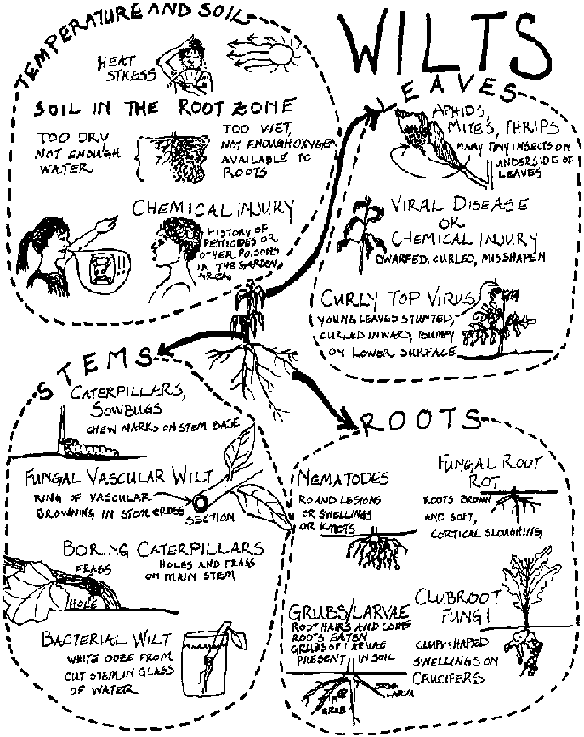 WILTS
TEMPERATURE AND SOIL
HEAT
STRESS
SOIL IN THE ROOT ZONE
TOO DRY
NOT ENOUGH
WATER
TOO WET,
NOT ENOUGH OXYGEN
AVAILABLE TO
ROOTS
CHEMICAL INJURY
HISTORY OF
PESTICIDES OR
OTHER POISONS
IN THE GARDEN
AREA
LEAVES
APHIDS,
MITES, THRIPS
MANY TINY INSECTS ON
UNDERSIDE OF
LEAVES
VIRAL DISEASE
OR
CHEMICAL INJURY
DWARFED, CURLED, MISSHAPEN
CURLY TOP VIRUS
YOUNG LEAVES STUNTED,
CURLED INWARD, BUMPY
ON LOWER SURFACE
STEMS
CATERPILLARS,
SOWBUGS
CHEW MARKS ON STEM BASE
FUNGAL VASCULAR WILT
RING OF VASCULAR
BROWNING IN STEM CROSS
SECTION
BORING CATERPILLARS
FRASS
HOLES AND FRASS
ON MAIN STEM
HOLE
BACTERIAL WILT
WHITE OOZE FROM
CUT STEM IN GLASS
OF WATER
ROOTS
NEMATODES
ROUND LESIONS
OR SWELLINGS
OR KNOTS
FUNGAL ROOT
ROT
ROOTS BROWN
AND SOFT,
CORTICAL SLOUGHING
GRUBS/LARVAE
ROOT HAIRS AND
ROOTS EATEN
GRUBS OR LARVAE
PRESENT IN SOIL
GRUB
LARVA
CLUBROOT
FUNGI
CLUB-SHAPED
SWELLINGS ON
CRUCIFERS